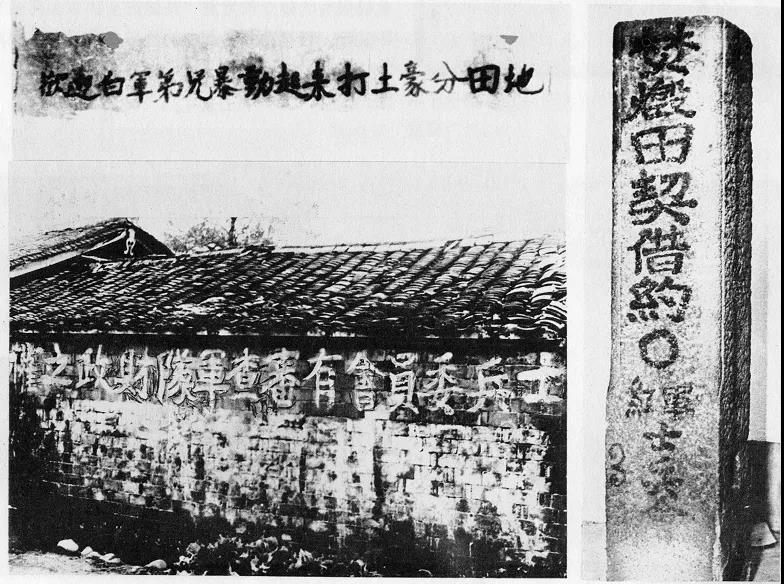 歡迎白軍弟兄暴動起来打土豪分田地
士兵委員會有審查軍隊財政之權
焚燬田契借約〇
紅軍